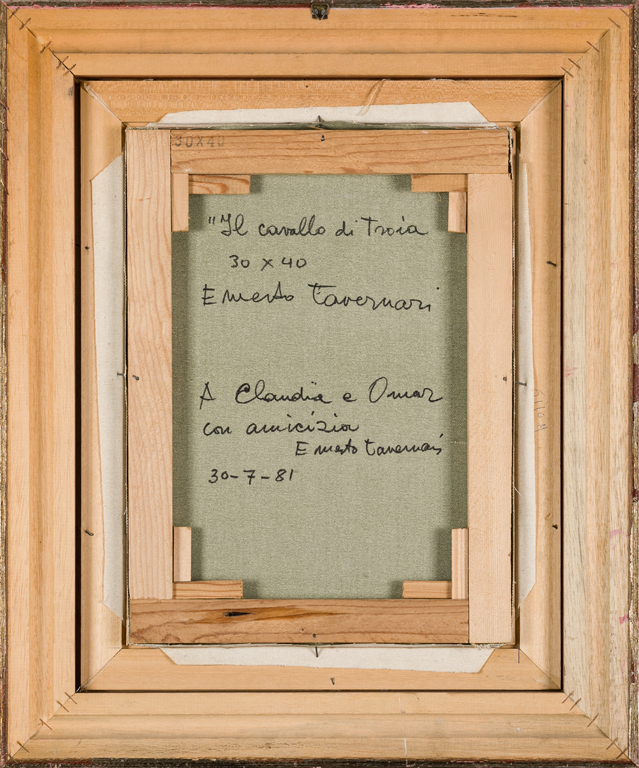 30X40
"Il cavallo di Troia
30 x 40
Ernesto Tavernari
A Claudia e Omar
con amicizia
Ernesto Tavernari
30-7-81